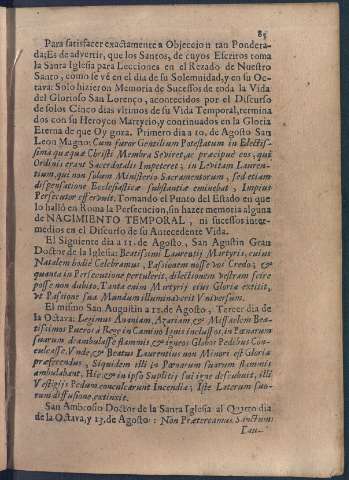 85
Para satisfacer exactamente a Objecion tan Pondera-
da; Es de advertir, que los Santos, de cuyos Escritos toma
la Santa Iglesia para Lecciones en el Rezado de Nuestro
Santo, como se vé en el dia de su Solemnidad, y en su Oc-
tava: Solo hizieron Memoria de Sucessos de toda la Vida
del Glorioso San Lorenço, acontecidos por el Discurso
de solos Cinco dias vltimos de su Vida Temporal, termina
dos con su Heroyco Martyrio, y continuados en la Gloria
Eterna de que Oy goza. Primero dia a 10. de Agosto San
Leon Magno: Cum furor Gentilium Potestatum in Electissi-
ma quæquæ Christi Membra Sæviret, ac præcipue eos, qui
Ordini erant Sacerdotalis Impeteret, in Levitam Laurentium,
tium, qui non solum Ministerio Sacramentorum, sed etiam
dispensatione Ecclesiasticæ substantiæ eminebat, Impius
Persecutor efferbuit. Tomando el Punto del Estado en que
lo halló en Roma la Persecucion, sin hazer memoria alguna
de NACIMIENTO TEMPORAL, ni sucessos inter-
medios en el Discurso de su Antecedente Vida.
El Siguiente dia a 11. de Agosto, San Agustin Gran
Doctor de la Iglesia: Beatissimi Laurentij Martyris, cuius
Natalem hodie Celebramus, Passionem nosse vos Credo; &
quanta in Persecutione pertulerit, dilectionem vestram scire
posse non dubito. Tanta enim Martyrij eius Gloria extitit,
vt Passione sua Mundum illuminaverit Vniversum.
El mismo San Augustin a 12. de Agosto, Tercer dia de
la Octava: Legimus Ananiam, Azariam & Missaelem Bea-
tissimos Pueros a Rege in Camino Ignis inclussos, in Pœnarum
suarum deambulasse flammis, & igneos Globos Pedibus Con-
culcasse. Vnde, & Beatus Laurentius non Minori est Gloria
præferendus, Siquidem illi in Pœnarum suarum flammis
ambulabant. Hic & in ipso Suplitij sui igne discubuit, illi
Vestigijs Pedum conculcarunt Incendia; Iste Laterum suo-
rum diffusione extinxit.
San Ambrosio Doctor de la Santa Iglesia al Quarto dia
de la Octava, y 13. de Agosto: Non Prætereamus Sanctum
Lau-